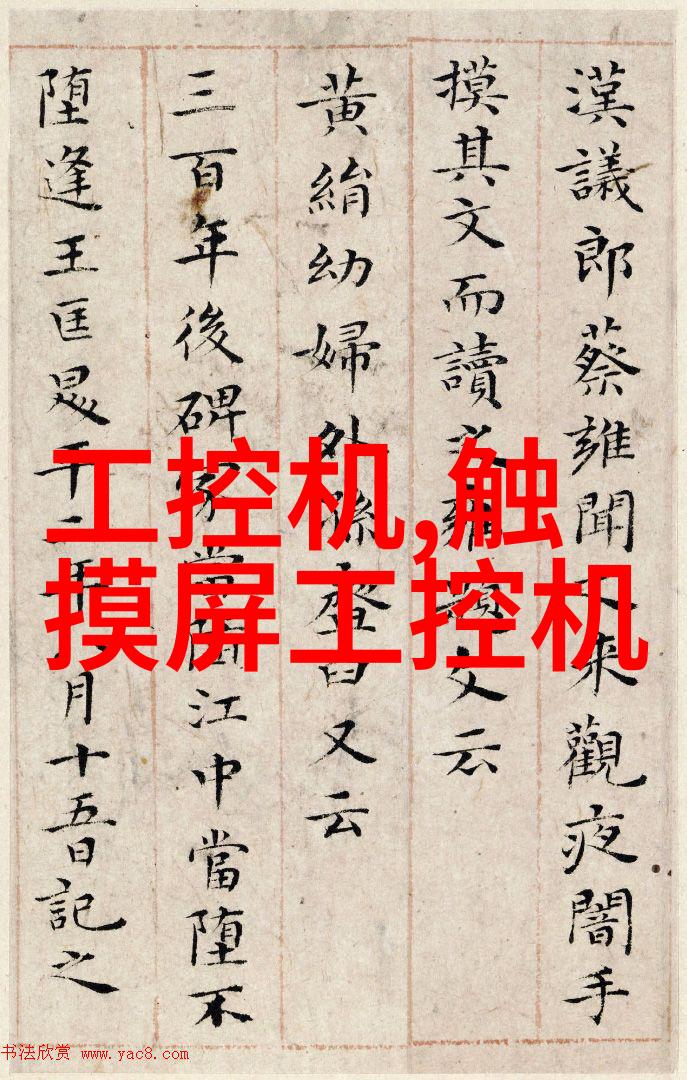 漢議郎蔡雍聞之來觀夜闇手
摸其文而讀之雍題文云
黃絹幼婦外孫臼又云
三百年後碑冢當堕江中當堕不
堕逢王匡平二年八月十五日記之
工控机,触
摸屏工控机
书法欣赏 www.yac8.com